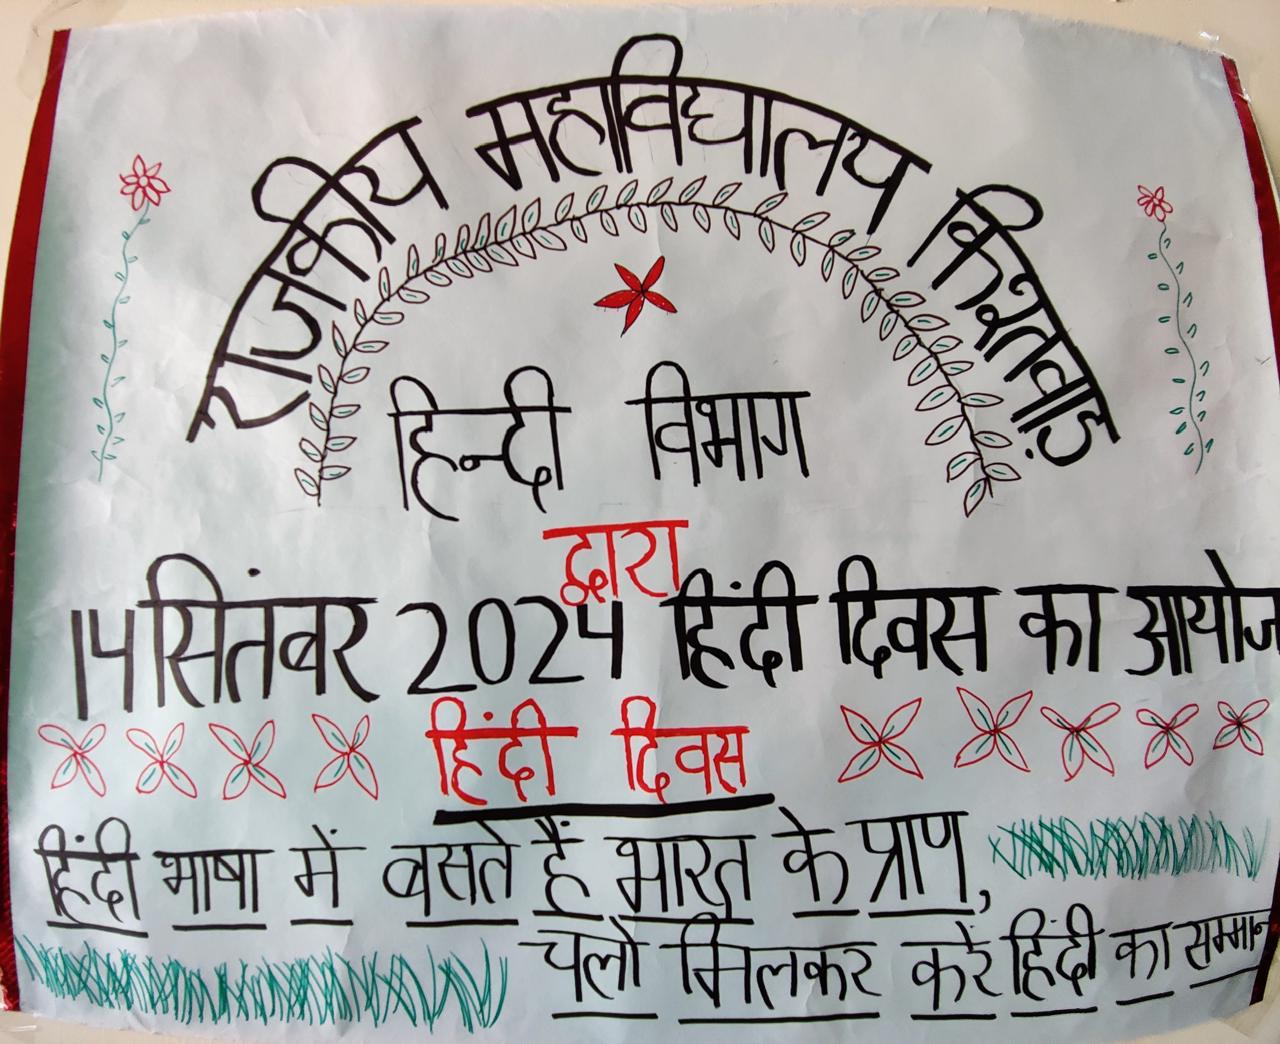 राजकीय महाविद्यालय किश्तवाड़
हिन्दी विभाग
द्वारा
14 सितंबर 2024 हिंदी दिवस का आयोज
हिंदी दिवस
हिंदी भाषा में बसते हैं भारत के प्राण,
चलो मिलकर करें हिंदी का सम्मान